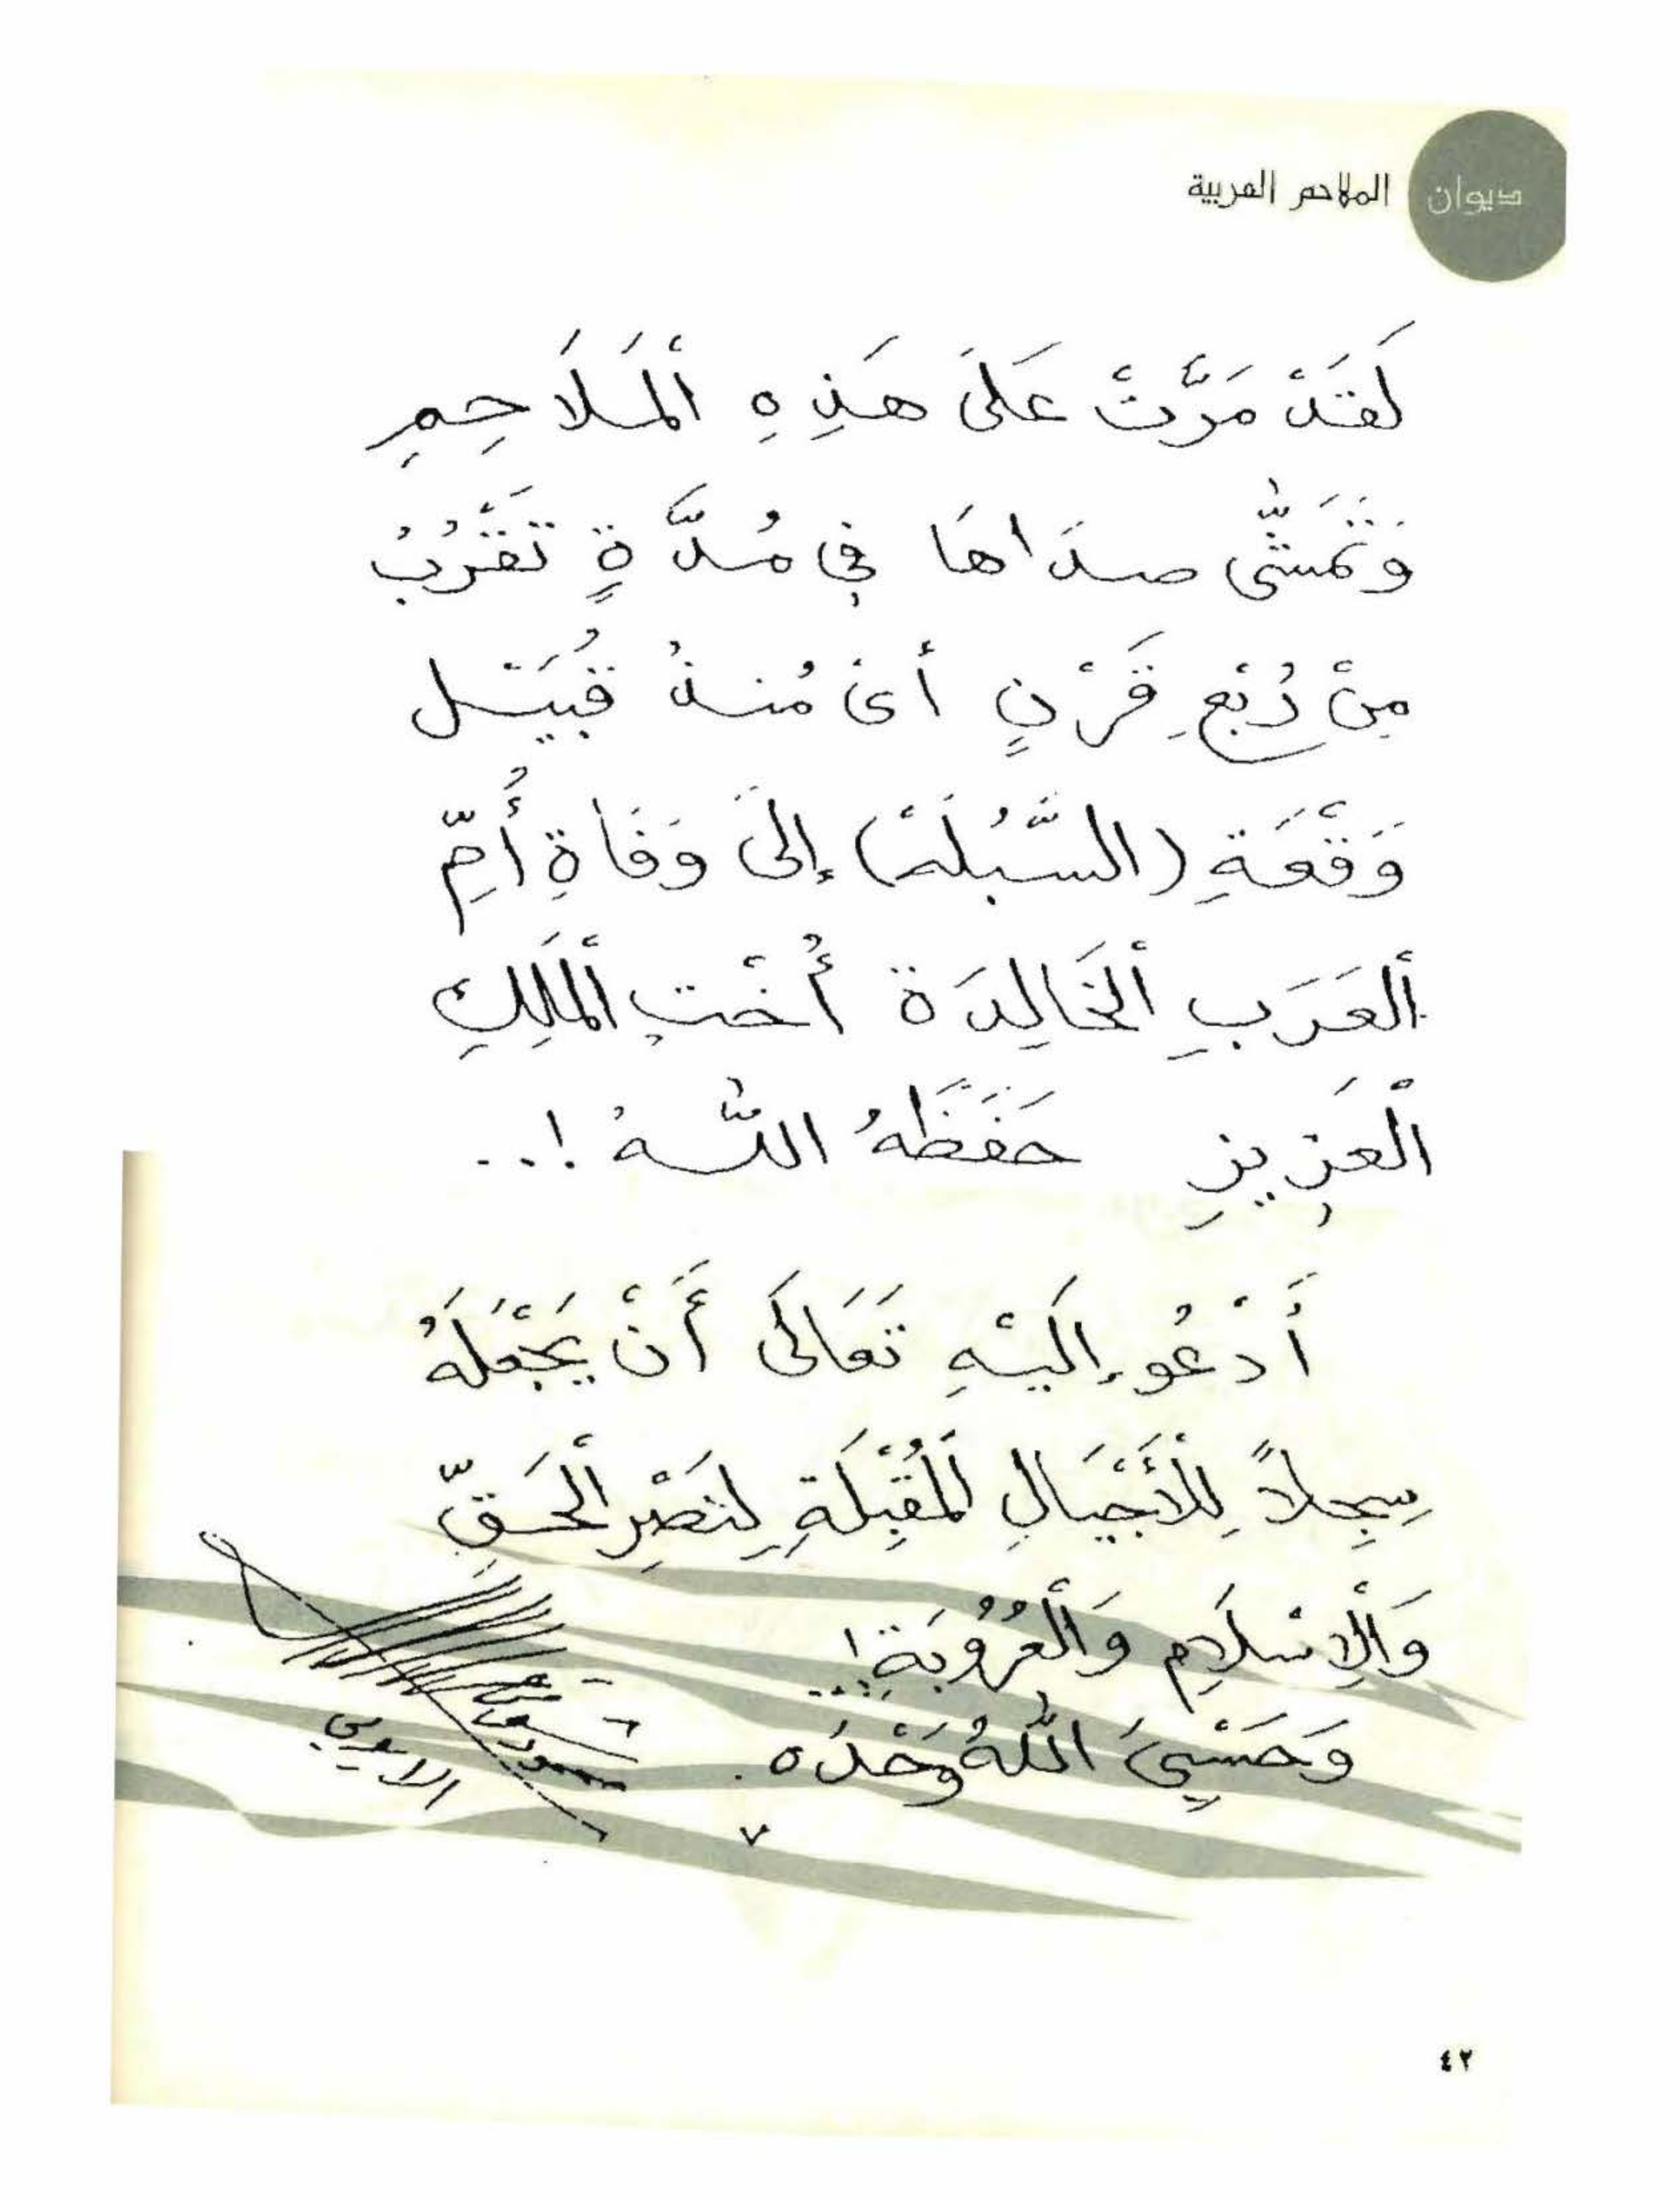 ديوان الملاحم العربية
لَقَدْ مَرَّتْ عَلَى هَذِهِ اْلمَلَاحِمِ
وَتَمَشَّى صدَاهَا في مُدَّةٍ تَقْرُبُ
مِنْ رُبْعِ قَرْنٍ أىْ مُنذُ قُبَيْل
وَقْعَةِ (السَّبُلَهْ) إلىَ وَفَاةِ أُمِّ
اْلعَرَبِ اْلخَالِدَة أُخْتِ اْلمَلِكِ
اْلعَزِيزِ حَفَظَهُ اللّٰهُ !..
أَدْعُو إلَيْهِ تَعَالَى أَنْ يَجْعَلَهُ
سِجِلاً لِلْأَجْيَالِ اْلمُقْبِلَةِ لِنَصْرِ اْلحَقِّ
وَاْلإسْلَامِ وَاْلعُرُوبَةِ!...
وَحَسْبِيَ اللّٰهُ وَحْدَه .
٤٢